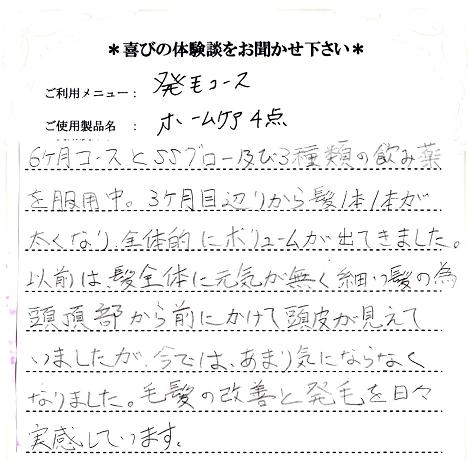 ＊喜びの体験談をお聞かせ下さい＊
ご利用メニュー： 発毛コース
ご使用製品名 ： ホームケア4点
6ケ月コースとSSグロー及び3種類の飲み薬
を服用中。3ケ月目辺りから髪1本1本が
太くなり、全体的にボリュームが出てきました。
以前は、髪全体に元気が無く細い髪の為
頭頂部から前にかけて頭皮が見えて
いましたが、今では、あまり気にならなく
なりました。毛髪の改善と発毛を日々
実感しています。